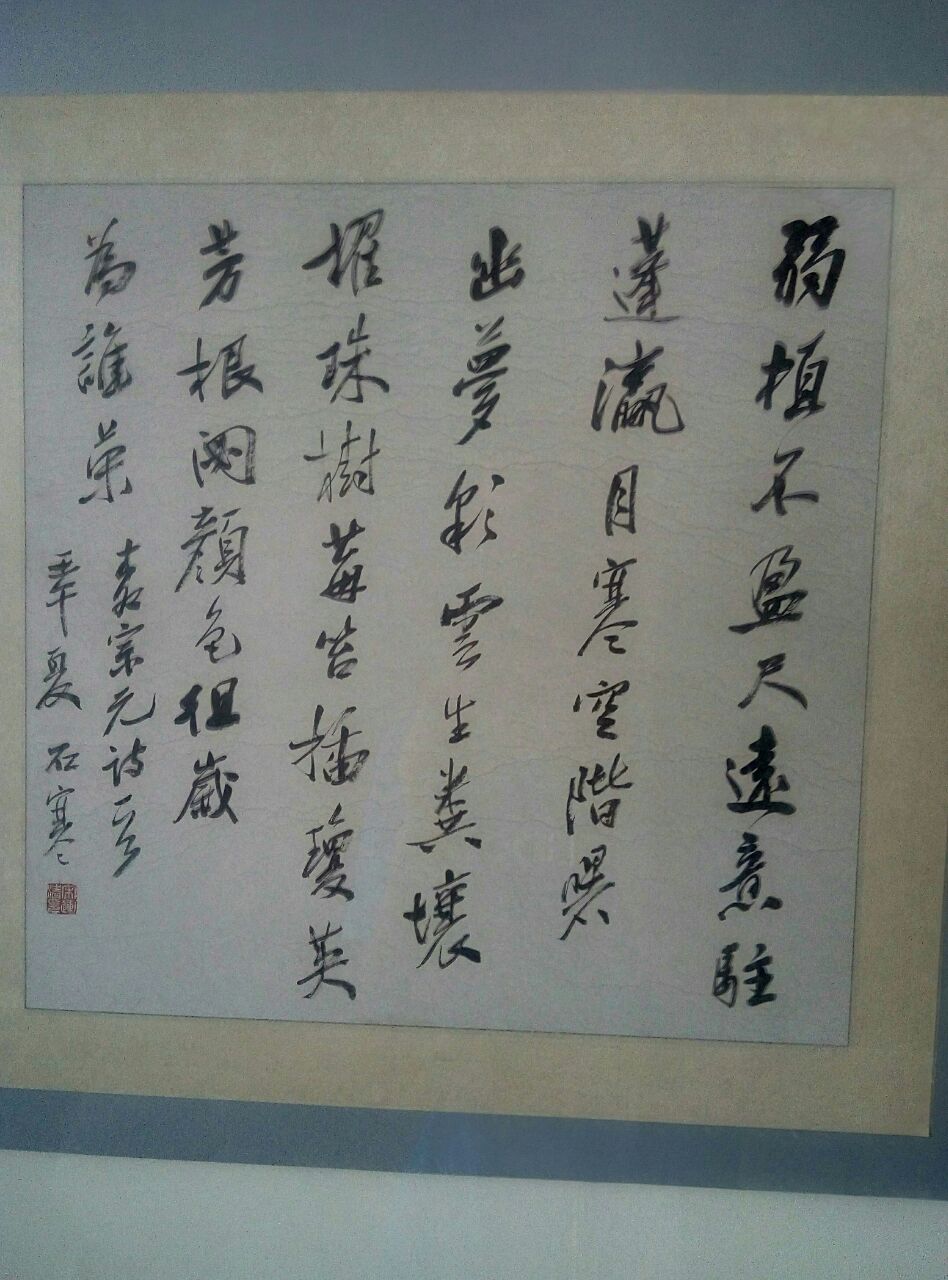 弱植不盈尺遠意駐
蓬瀛月寒空階曙
幽夢彩雲生糞壤
擢珠樹莓苔插瓊英
芳根閟顏色徂歲
為誰榮
柳宗元詩一首
壬午夏 石寒